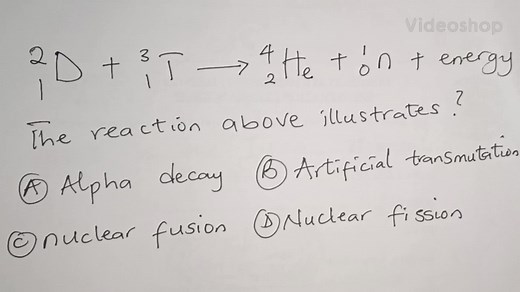 Videoshop
²₁D + ³₁T → ⁴₂He + ¹₀n + energy
The reaction above illustrates?
Ⓐ Alpha decay Ⓑ Artificial transmutation
Ⓒ nuclear fusion Ⓓ Nuclear fission